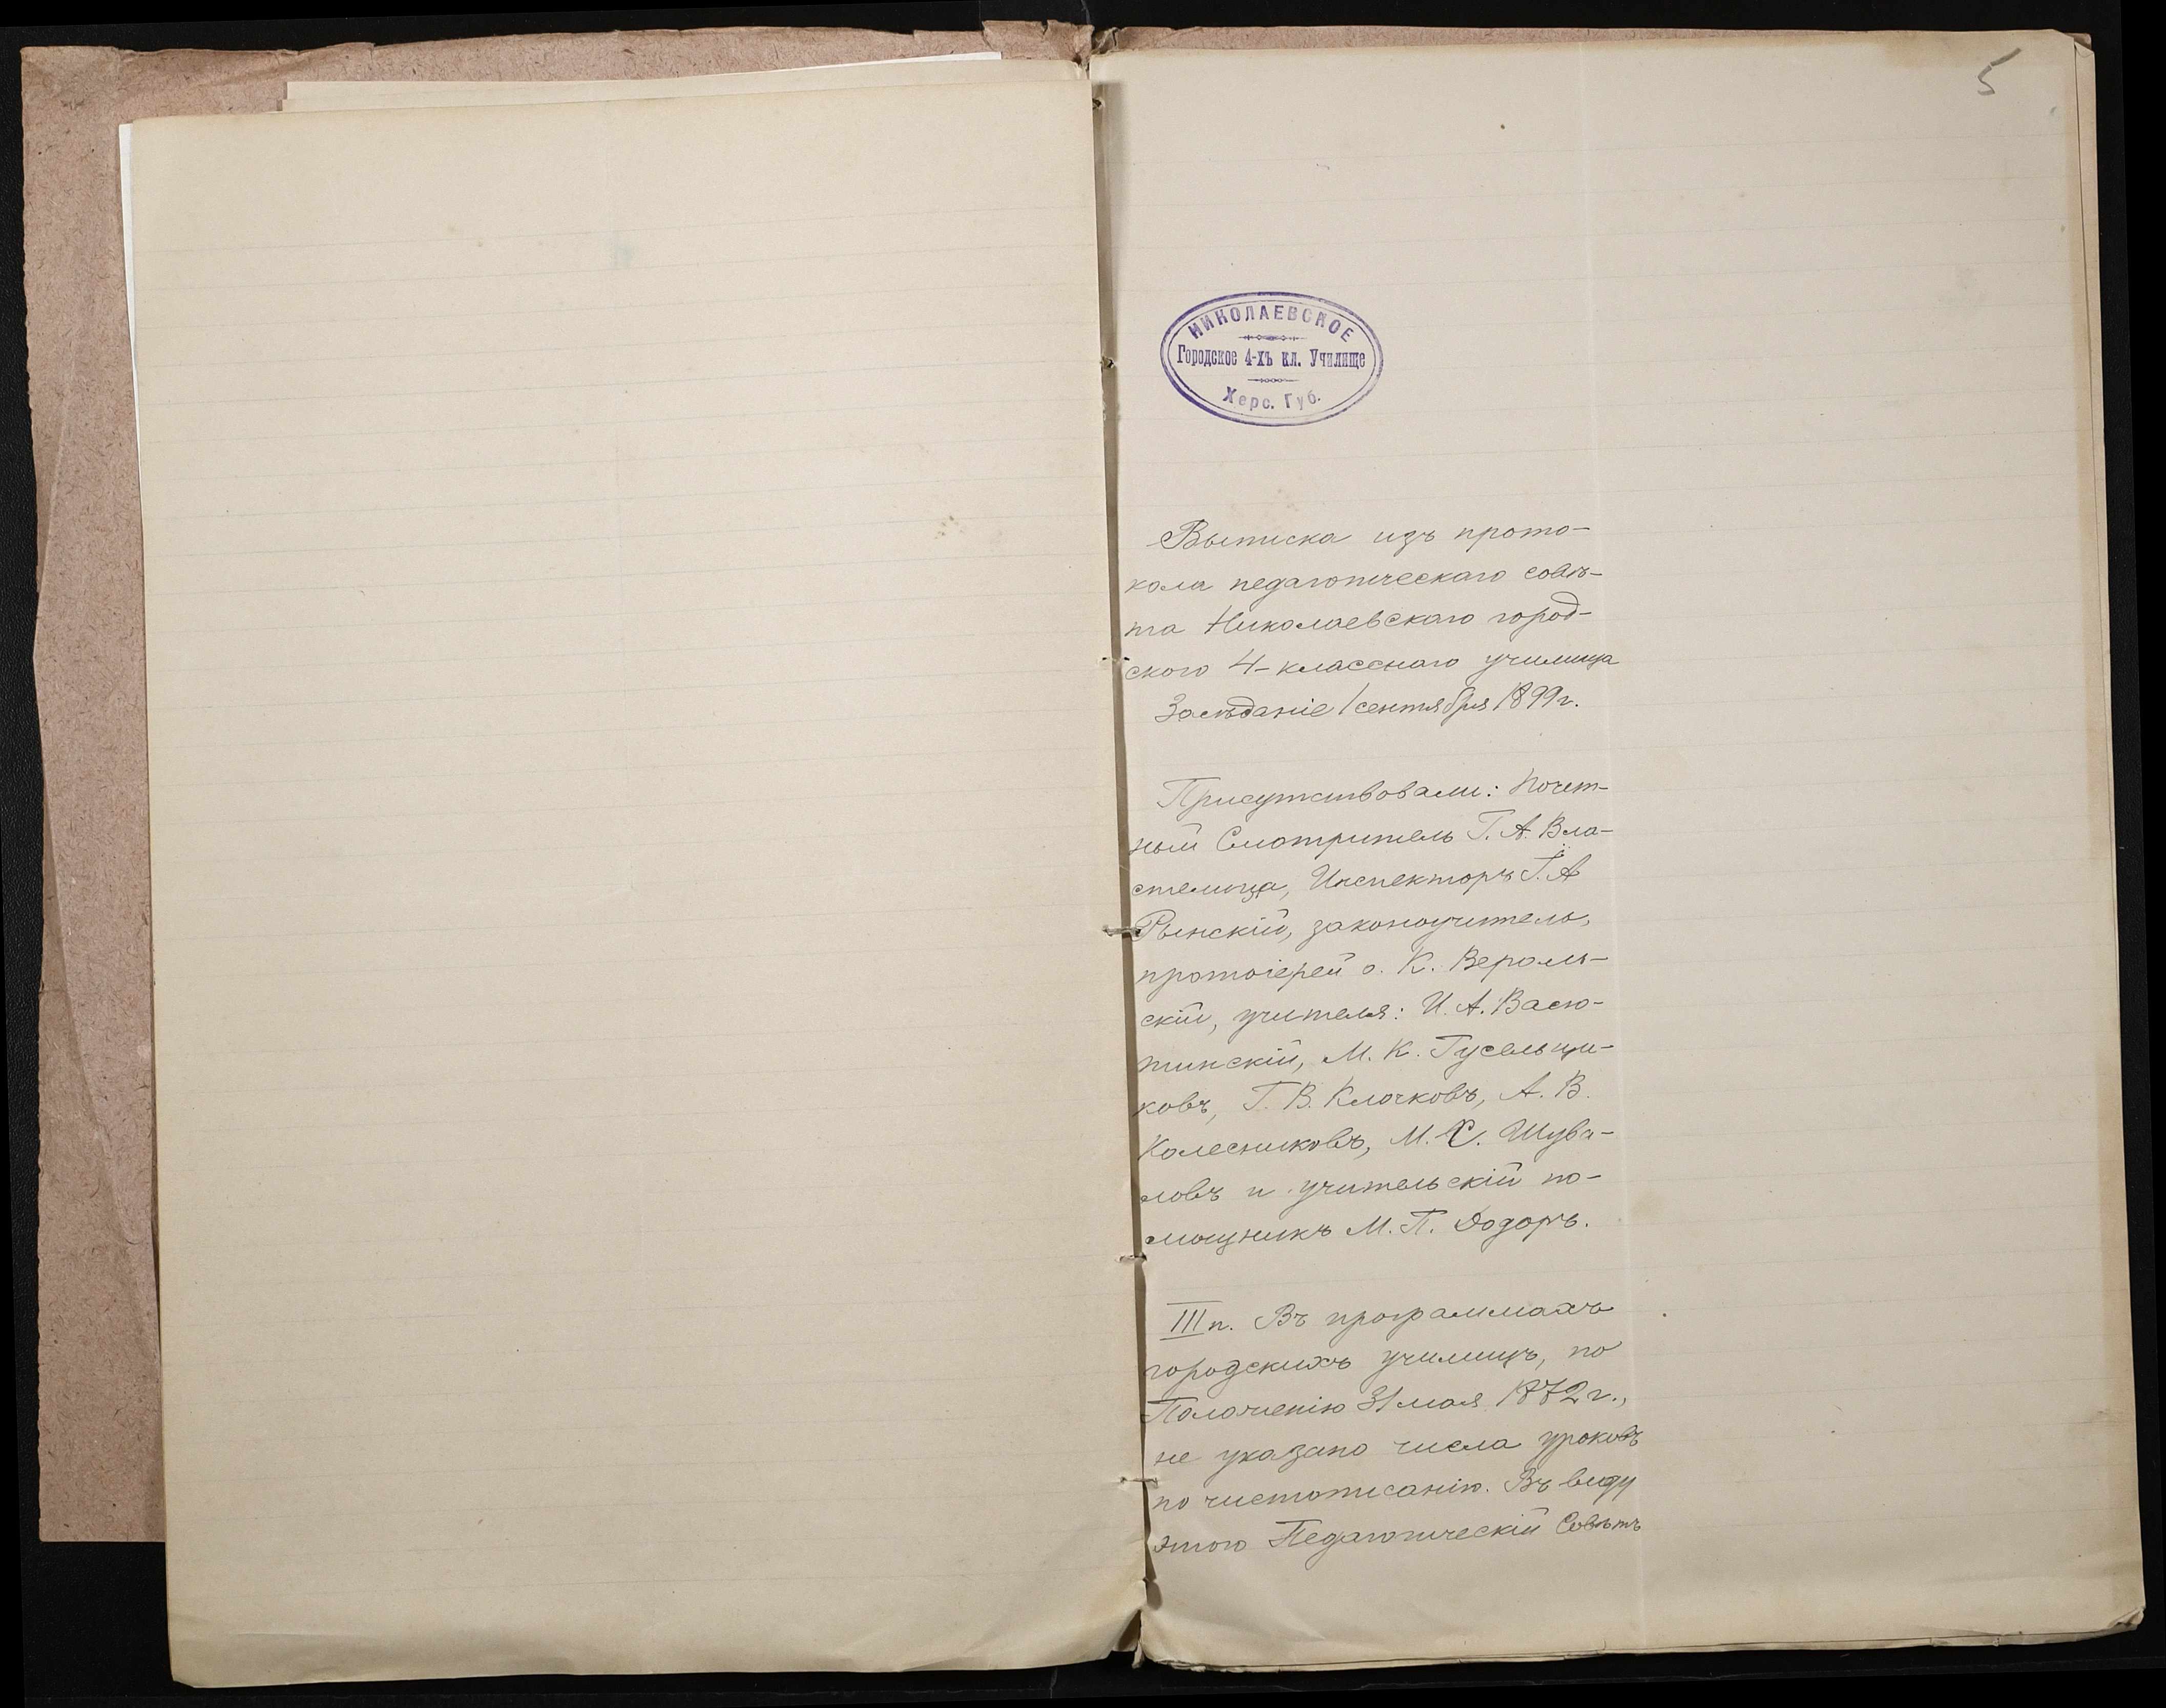 5
НИКОЛАЕВСКОЕ
Городское 4-хъ кл. Училище
Херс. Губ.
Выписка изъ прото-
кола педагогическаго совѣ-
та Николаевскаго город-
ского 4-класснаго училища
Засѣданіе 1 сентября 1899 г.
Присутствовали: Почет-
ный Смотритель Г. А. Вла-
стелица, Инспекторъ Г. А
Рынскій, законоучитель,
протоіерей о. К. Вероль-
скій, учителя: И. А. Васю-
тинскій, М. К. Гусельщи-
ковъ, Г. В. Клочковъ, А. В.
Колесниковъ, М. С. Шува-
ловъ и учительскій по-
мощникъ М. П. Додоръ.
III п. Въ программахъ
городскихъ училищъ, по
Положенію 31 мая 1872 г.,
не указано числа уроковъ
по чистописанію. Въ виду
этого Педагогическій Совѣтъ